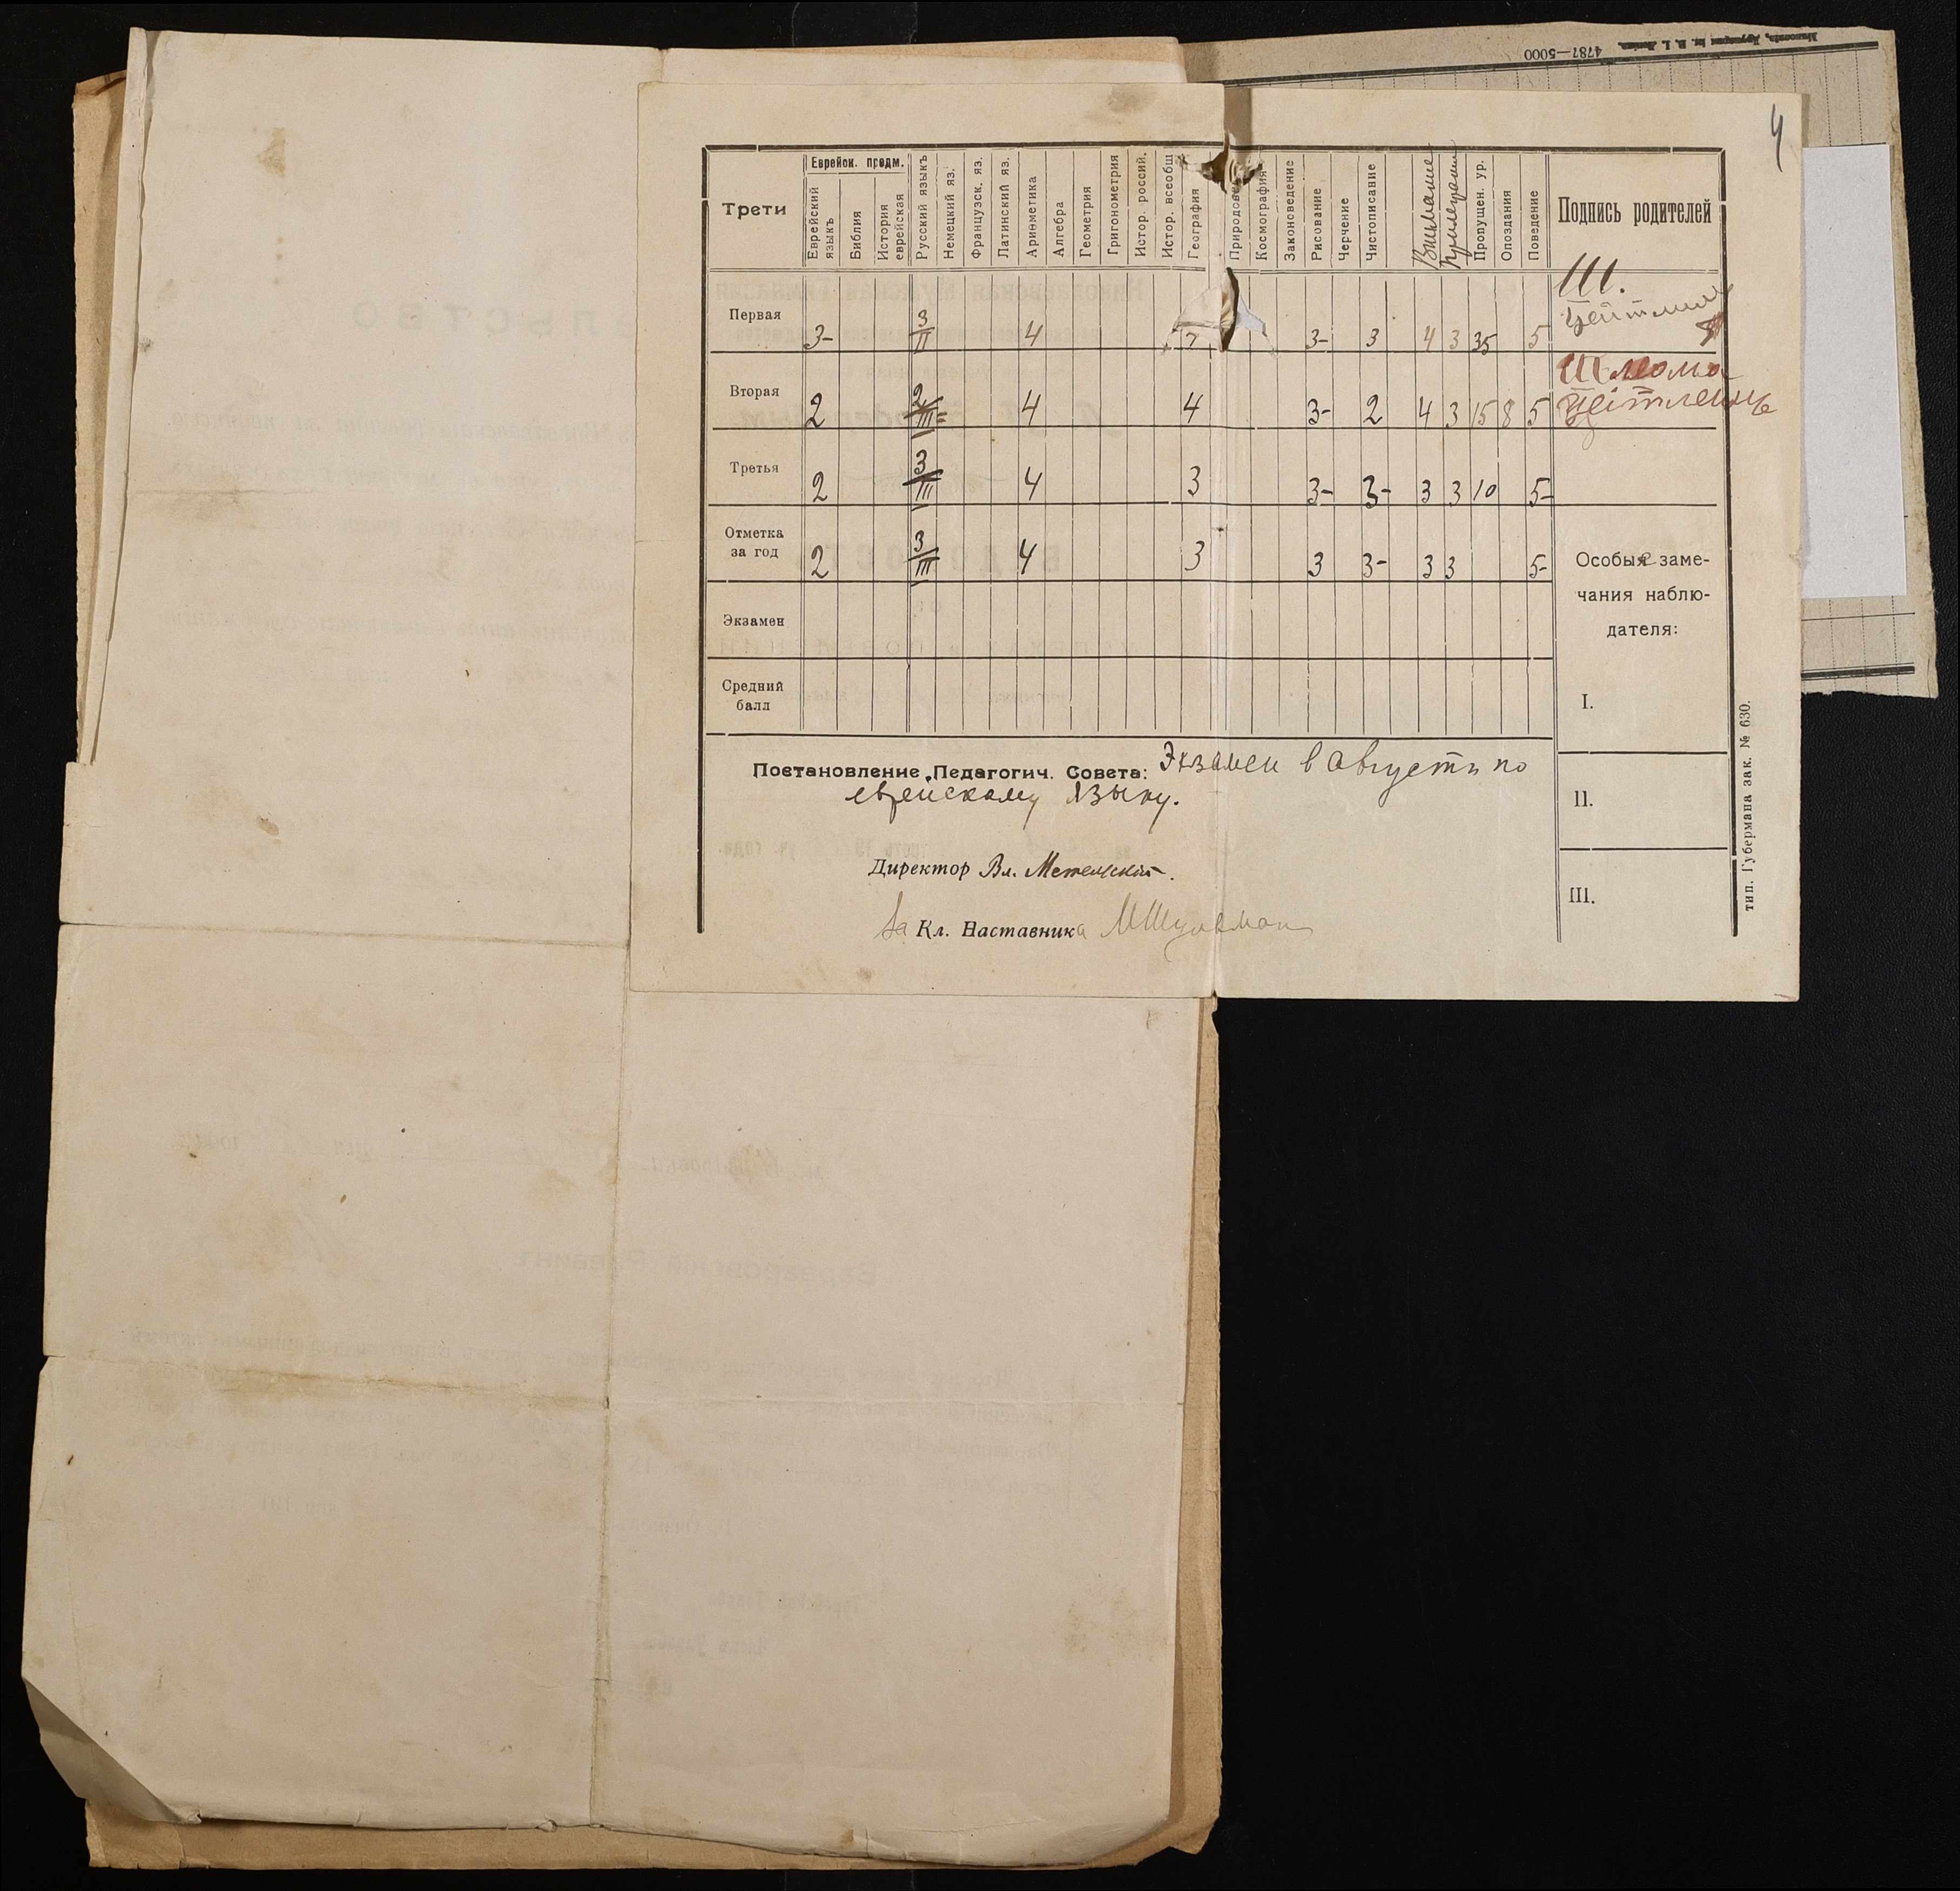 4787—5000
4
Трети
Еврейск. предм.
Еврейский языкъ
Библия
История еврейская
Русский языкъ
Немецкий яз.
Французск. яз.
Латинский яз.
Ариѳметика
Алгебра
Геометрия
Григонометрия
Истор. россий.
Истор. всеобщ
География
Космография
Законоведение
Рисование
Черчение
Чистописание
Внимание
Прилежание
Пропущен. ур.
Опоздания
Поведение
Подпись родителей
Первая 3- 3/II 4 3- 3 4 3 35 5 Ш.
Вторая 2 2/III= 4 4 3- 2 4 3 15 8 5 Шлома
Третья 2 3/III 4 3 3- 3- 3 3 10 5-
Отметка за год 2 3/III 4 3 3 3- 3 3 5-
Экзамен
Средний балл
Особые заме-
чания наблю-
дателя:
I.
II.
III.
Постановление Педагогич. Совета: Экзамен в августѣ по
еврейскому языку.
Директор Вл.
За Кл. Наставника М Шульман
тип. Губермана зак. № 630.